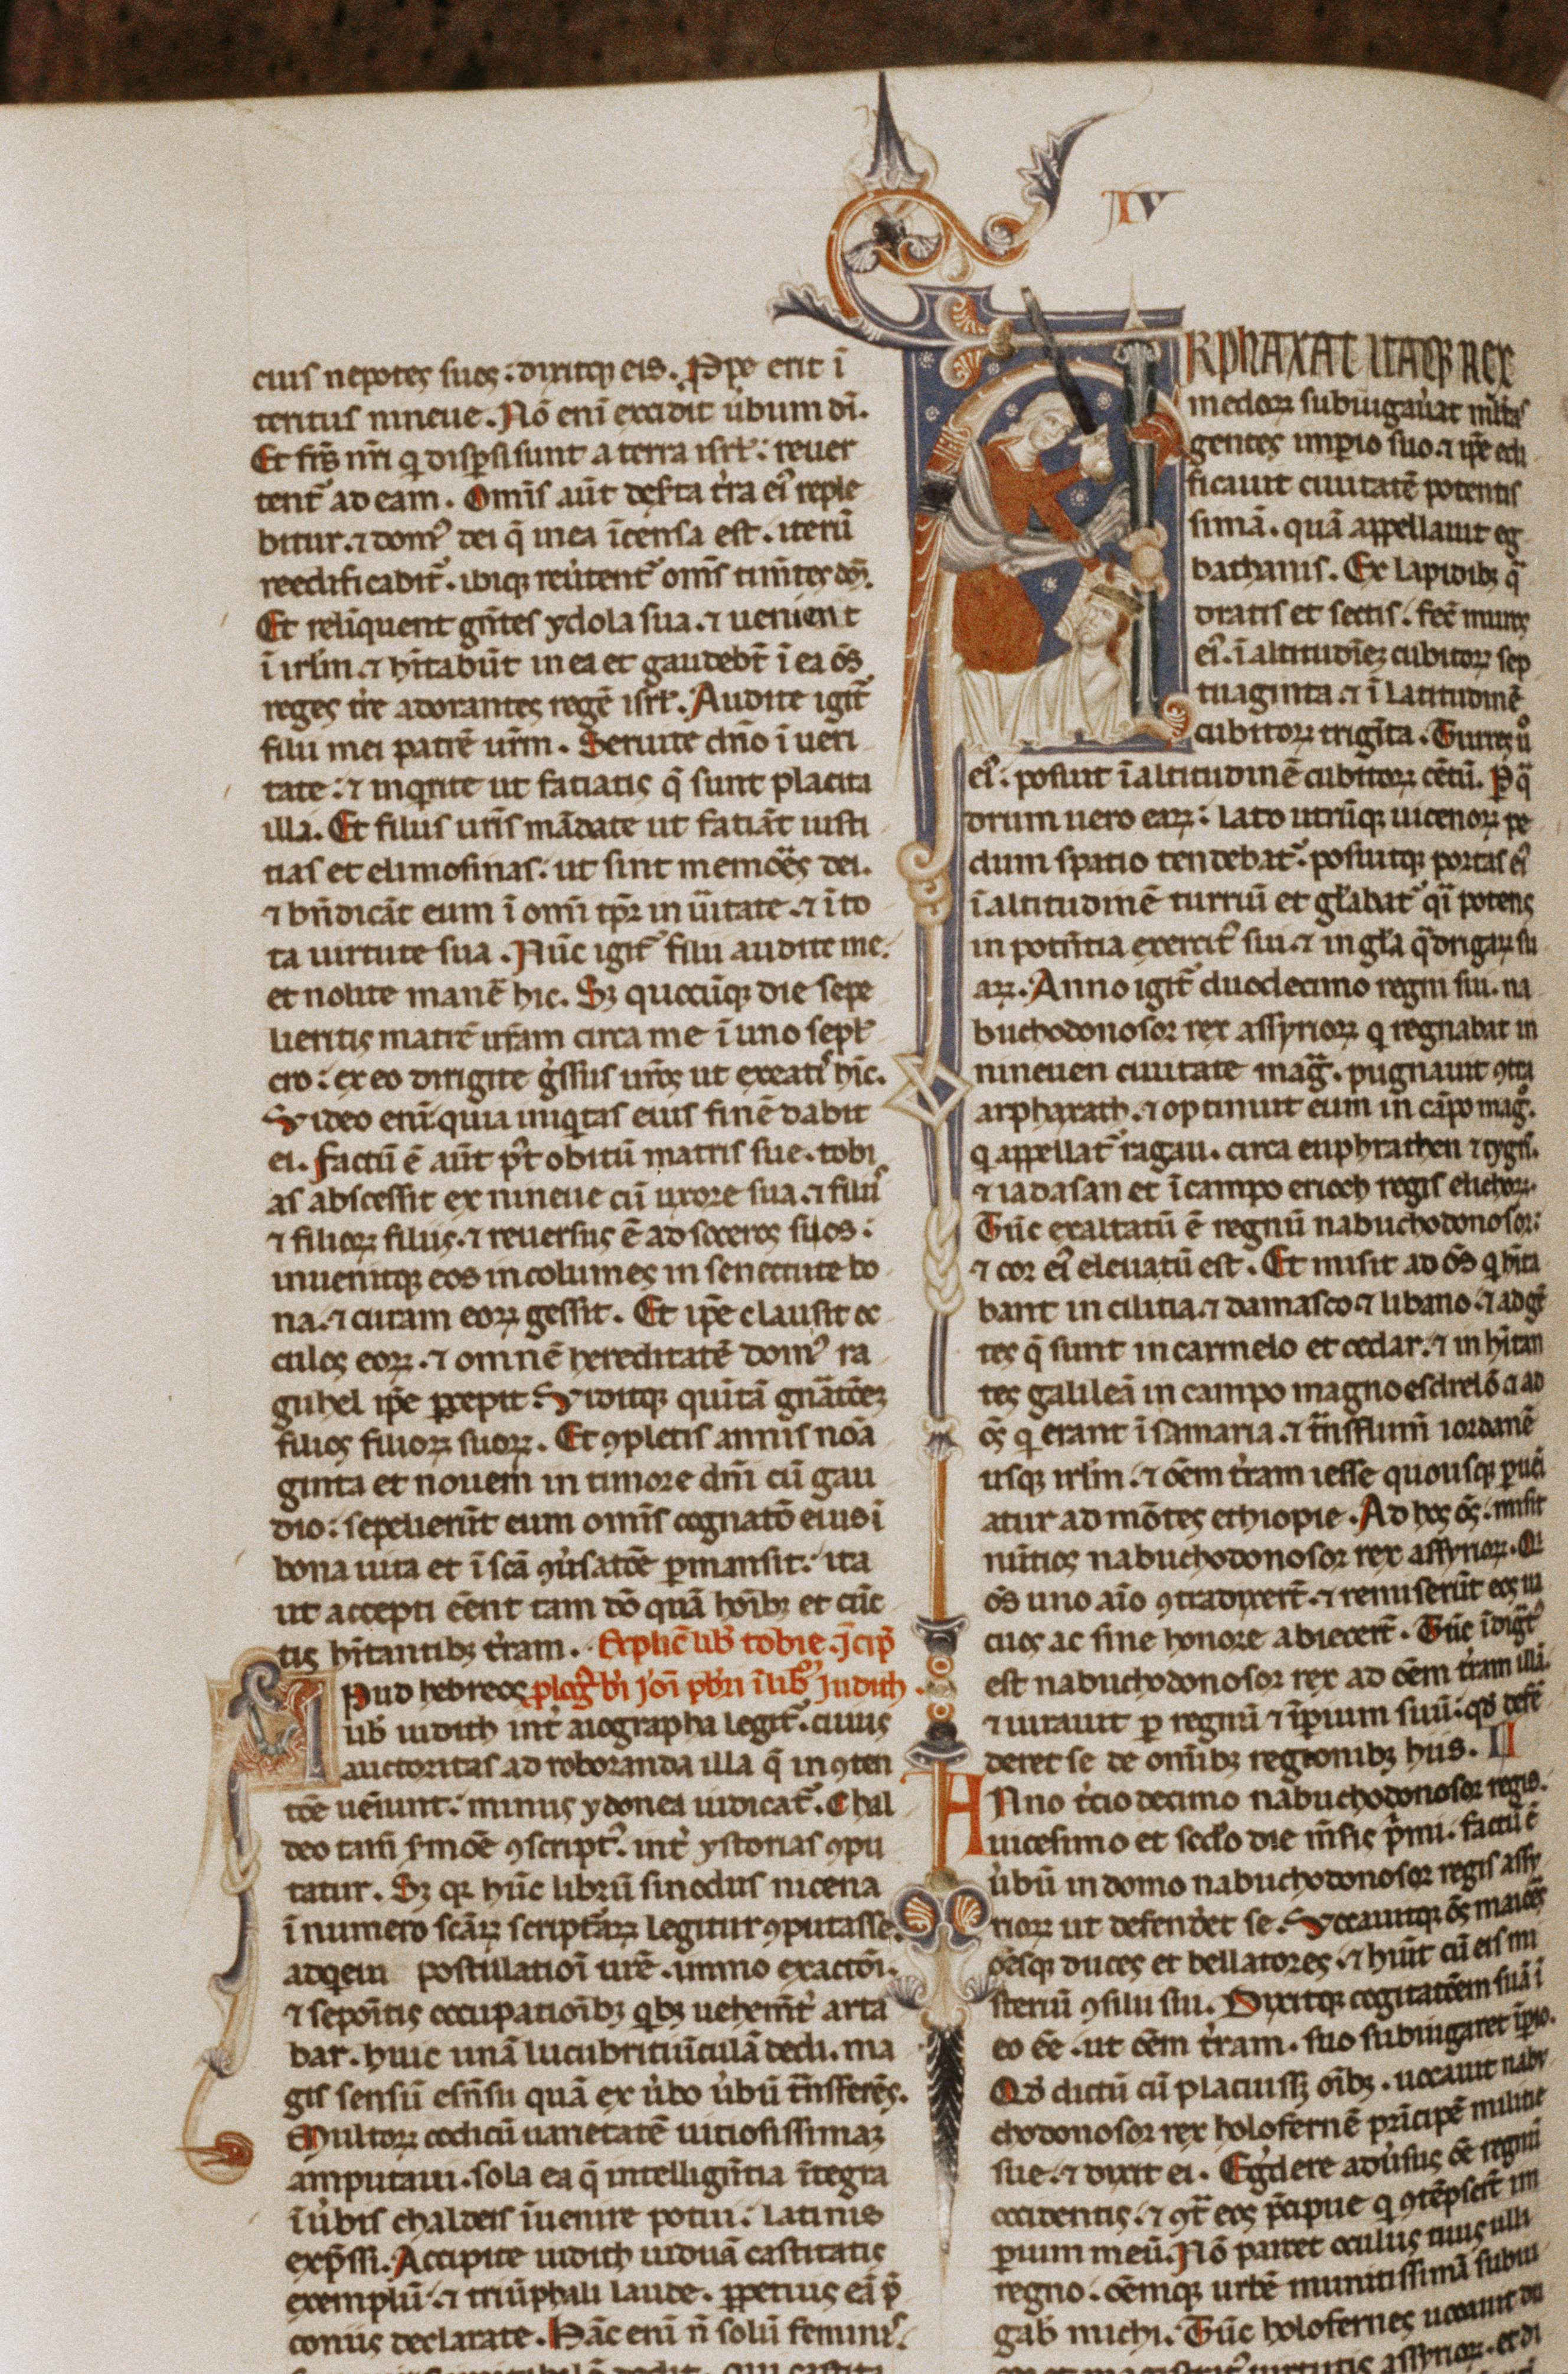 IV
eius nepotes suos : dixitqꝫ eis . Ꝓpe erit ī
teritus nineue . Nō enī excidit ůbum dī .
Et fr̄s nr̄i q̇ disꝑsi sunt a terra isrł : reuer
tent᷑ ad eam . Omīs aūt deſta t̓ra eiꝰ reple
bitur . ⁊ domꝰ dei q̄ in ea īcensa est . iterū
reedificabit᷑ . ibiqꝫ reu̓tent᷑ om̄s tim̄tes dm̄ .
Et relīquent gn̄tes ydola sua . ⁊ uenient
ī irłm . ⁊ hītabūt in ea et gaudebt̄ ī ea ōs
reges tr̄e adorantes regē isrł . Audite igit᷑
filii mei patrē ur̄m . Seruite dn̄o ī ueri
tate : ⁊ inq̇rite ut fatiatis q̄ sunt placita
illi . Et filiis ur̄is mādate ut fatiāt iusti
tias et elimosinas : ut sint memōres dei .
⁊ bn̄dicāt eum ī omī tp̄r in ūitate . ⁊ ī to
ta uirtute sua . Nūc igit᷑ filii audite me .
et nolite manē hic . Sꝫ quocūqꝫ die sepe
lieritis matrē ur̄am circa me ī uno sepł
cro : ex eo dirigite g̓ssus ur̄os ut exeatis hīc .
Video enī quia iniq̇tas eius finē dabit
ei . Factū ē aūt p̄t obitū matris sue . tobi
as abscessit ex nineue cū uxore sua . ⁊ filiis
⁊ filioꝝ filiis . ⁊ reuersus ē ad soceros suos :
inuenitqꝫ eos incolumes in senectute bo
na . ⁊ curam eoꝝ gessit . Et ip̄e clausit oc
culos eoꝝ . ⁊ omnē hereditatē domꝰ ra
guhel ip̄e ꝑcepit . Viditqꝫ quītā gnātōeꝫ
filios filioꝝ suoꝝ . Et ꝯpletis annis nōa
ginta et nouem in timore dm̄i cū gau
dio : sepelierūt eum omīs cognatō eius ī
bona uita et ī scā ꝯu̓satōe ꝑmansit : ita
ut accepti ēent tam dō quā hoībꝫ et cūc
tis hītantibꝫ t̓ram . Explic̄ lib̄ tobie . Īcip̄
Apud hebreos plog̓ bī ieroī pb̄ri ī lib̄ Judith .
lib̄ iudith int̓ aiographa legit᷑ . cuius
auctoritas ad roboranda illa q̄ in ꝯten
tōe ueīunt . minus ydonea iudicat᷑ . Chal
deo tam̄ s̓mōe ꝯscriptꝰ . int̓ ystorias ꝯpu
tatur . Sꝫ qꝛ hūc librū sinodus nicena
ī numero scāꝝ scripturaꝝ legitur ꝯputasse .
adq̇eui postulatioī ur̄e . immo exactōi .
⁊ sepoītis occupatioībꝫ q̇bꝫ uehemt̓ arta
bar . huic unā lucubritiūculā dedi . ma
gis sensū esn̄su quā ex u̓bo u̓bū tn̄sferēs .
Multoꝝ codicū uarietatē uitiosissimaꝫ
amputaui . sola ea q̄ intellign̄tia ītegra
ī u̓bis chaldeis īuenire potui . latinis
exp̄ssi . Accipite iudith uiduā castitatis
exemplū . ⁊ triūphali laude . ꝑpetuis eā p̄
coniis declarate . Hāc enī n̄ solū feminis .
ARPHAXAT ITAQꝫ REX
medoꝝ subiugau̓at m̄ltas
gentes imꝑio suo . ⁊ ip̄e edi
ficauit ciuitatē potentis
simā . quā appellauit eg
bathanis . Ex lapidibꝫ q̄
dratis et sectis . fec̄ muros
eiꝰ . ī altitudīeꝫ cubitoꝝ sep
tuaginta . ⁊ ī latitudinē
cubitoꝝ trigīta . Turres ů
eiꝰ . posuit ī altitudinē cubitoꝝ cētū . Ꝑ q̄
drum uero eaꝝ : lato utrūqꝫ uicenoꝝ pe
dum spatio tendebat᷑ . posuitqꝫ portas eiꝰ
ī altitudinē turriū et głabat᷑ qī potens
in potn̄tia exercitꝰ sui . ⁊ in głia q̄drigaꝝ su
aꝝ . Anno igit᷑ duodecimo regni sui . na
buchodonosor rex assyrioꝝ q̇ regnabat in
nineuen ciuitate maḡ . pugnauit ꝯtra
arphaxath . ⁊ optinuit eum in cāpo mag̊ .
q̇ appellat᷑ ragau . circa euphrathen ⁊ tygrī .
⁊ iadasan et ī campo erioch regis elichoꝝ .
Tūc exaltatū ē regnū nabuchodonosor :
⁊ cor eiꝰ eleuatū est . Et misit ad ōs q̇ hīta
bant in cilitia . ⁊ damasco . ⁊ libano . ⁊ ad gn̄
tes q̄ sunt in carmelo et cedar . ⁊ inhītan
tes galileā in campo magno esdrelō . ⁊ ad
ōs q̇ erant ī samaria . ⁊ tn̄s flum̄ iordanē
usqꝫ irłm . ⁊ ōem t̓ram iesse quousqꝫ ꝑueī
atur ad mōtes ethiopie . Ad hos ōs . misit
nūtios nabuchodonosor rex assyrioꝝ . Qi
ōs uno aīo ꝯtradixerūt . ⁊ remiserūt eos ua
cuos ac sine honore abiecerūt . Tūc īdignatꝰ
est nabuchodonosor rex ad ōem t̓ram illā .
⁊ iurauit ꝑ regnū ⁊ īꝑium suū . qd̄ defē
deret se de omībꝫ regionibꝫ hiis . II
Anno t̓cio decimo nabuchodonosor regis .
uicesimo et sec̄do die m̄sis p̓mi . factū ē
u̓bū in domo nabuchodonosor regis assy
rioꝝ ut defendet se . Vocauitqꝫ ōs maiōes
ōesqꝫ duces et bellatores . ⁊ huīt cū eis mi
steriū ꝯsilii sui . Dixitqꝫ cogitatōem suā ī
eo ēē . ut ōem t̓ram . suo subiugaret īꝑio .
Qd̄ dictū cū placuissꝫ oībꝫ . uocauit nabu
chodonosor rex holofernē prīcipē militie
sue . ⁊ dixit ei . Eg̓dere adu̓sus ōē regnū
occidentis . ⁊ ꝯt̄ eos p̄cipue q̇ ꝯtēpserūt im
perium meū . Nō parcet oculus tuus ulli
regno . ōemqꝫ urbē munitissimā subiu
gab̄ michi . Tūc holofernes uocauit du